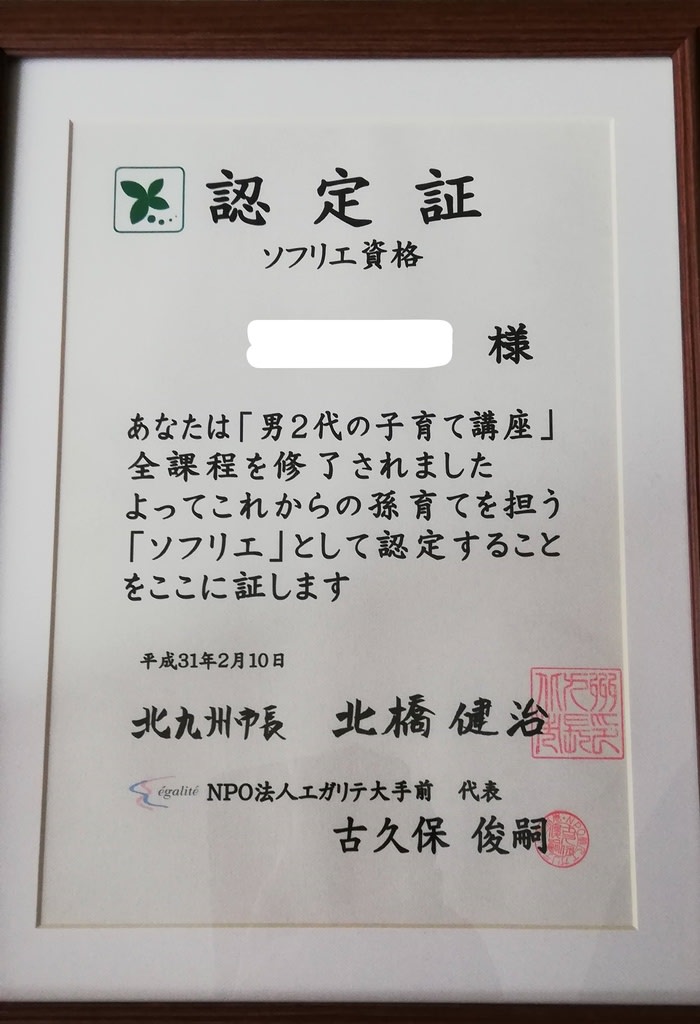 認定証
ソフリエ資格
様
あなたは「男2代の子育て講座」
全課程を修了されました
よってこれからの孫育てを担う
「ソフリエ」として認定すること
をここに証します
平成31年2月10日
北九州市長 北橋健治
égalité NPO法人エガリテ大手前 代表
古久保 俊嗣